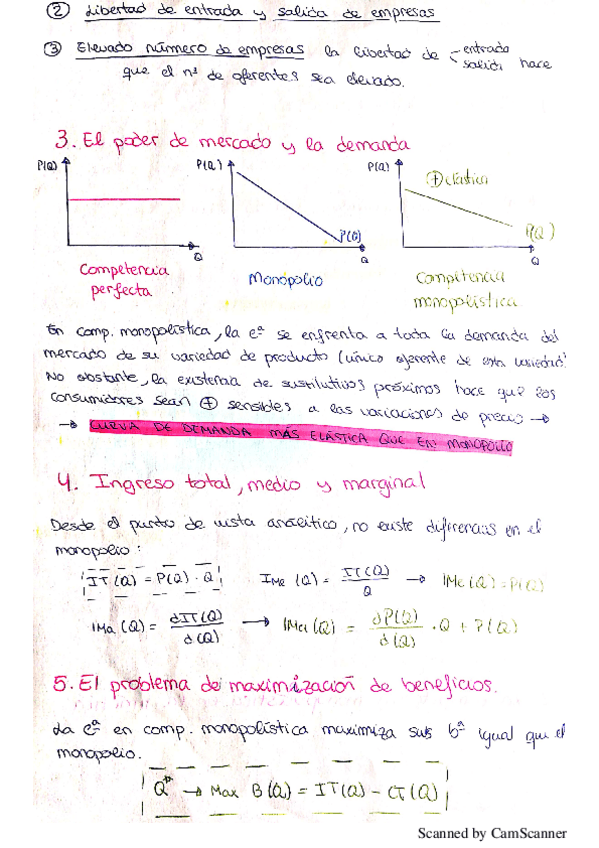 ② Libertad de entrada y salida de empresas
③ Elevado número de empresas la libertad de - entrada
salida hace
que el nº de oferentes sea elevado.
3. El poder de mercado y la demanda
P(Q) P(Q) P(Q) ⊕ elástica
P(Q) P(Q)
Q Q Q
Competencia perfecta
Monopolio
Competencia monopolística
En comp. monopolística, la eª se enfrenta a toda la demanda del
mercado de su variedad de producto (único oferente de esta variedad)
No obstante, la existencia de sustitutivos próximos hace que los
consumidores sean ⊕ sensibles a las variaciones de precio →
→ CURVA DE DEMANDA MÁS ELÁSTICA QUE EN MONOPOLIO
4. Ingreso total, medio y marginal
Desde el punto de vista analítico, no existe diferencias en el
monopolio:
IT(Q) = P(Q) · Q IMe (Q) = IT(Q) / Q → IMe(Q) = P(Q)
IMa (Q) = ∂IT(Q) / ∂(Q) → IMa(Q) = ∂P(Q) / ∂(Q) · Q + P(Q)
5. El problema de maximización de beneficios.
La eª en comp. monopolística maximiza sus bº igual que el
monopolio.
Qᵐ → Max B(Q) = IT(Q) - CT(Q)
Scanned by CamScanner